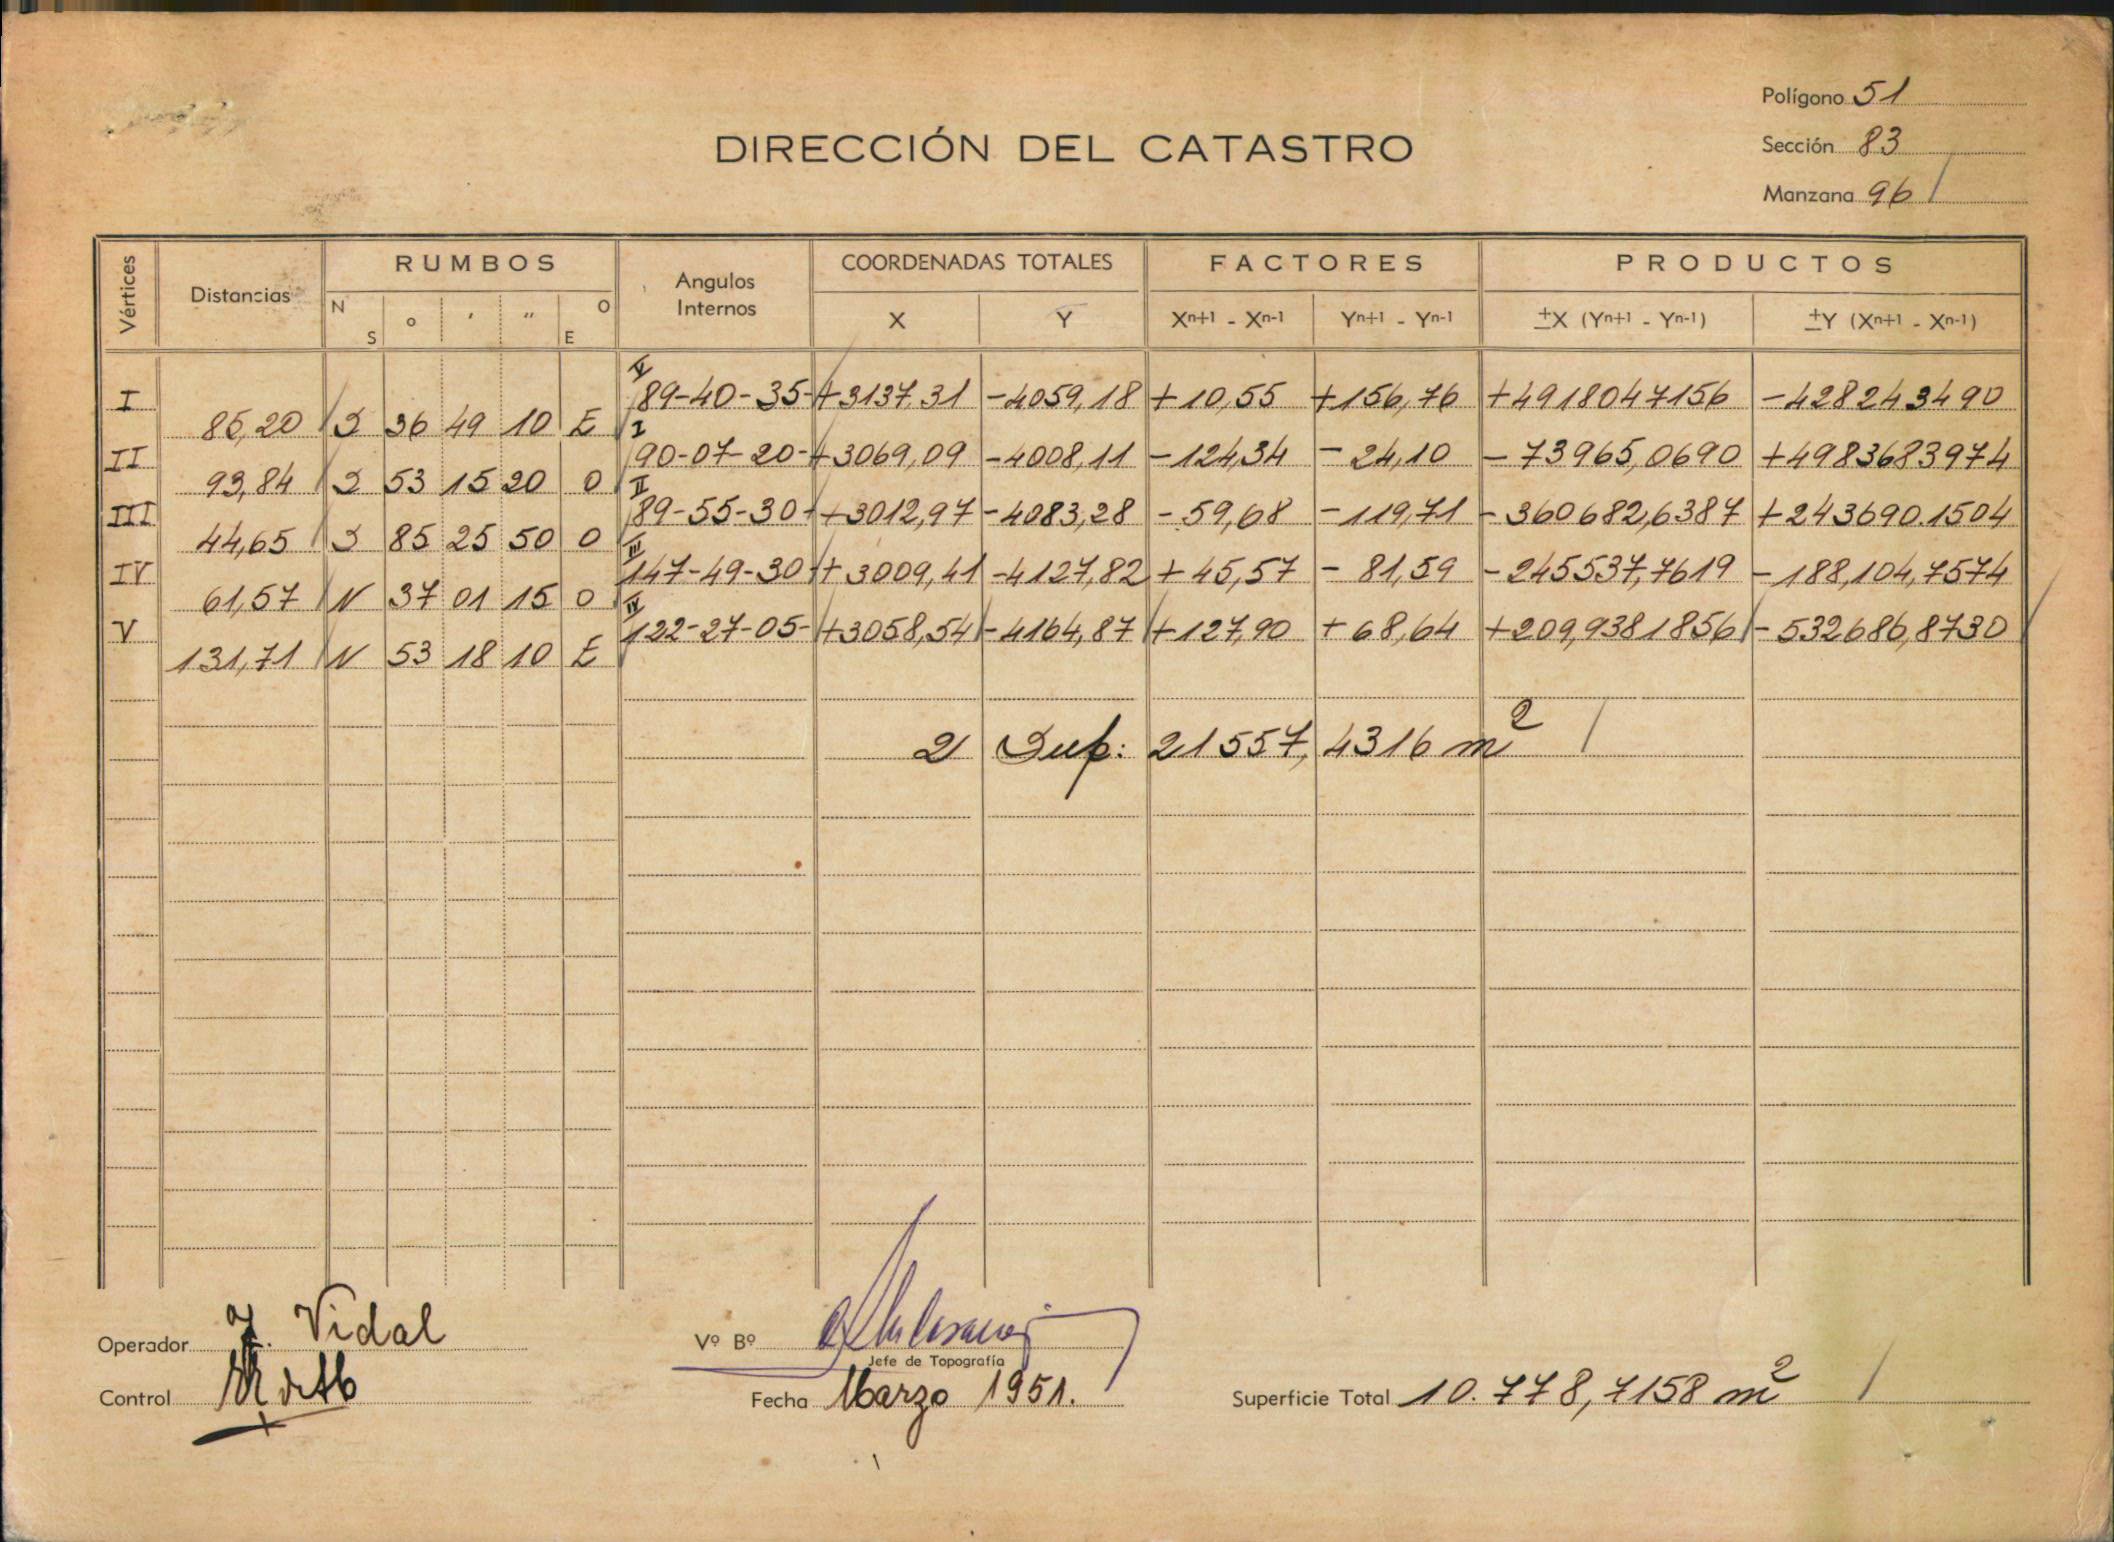 Polígono 51
DIRECCIÓN DEL CATASTRO
Sección 83
Manzana 96
Vértices
Distancias
RUMBOS
N S o ' " O E
Angulos
Internos
COORDENADAS TOTALES
X Y
FACTORES
Xn+1 - Xn-1 Yn+1 - Yn-1
PRODUCTOS
±X (Yn+1 - Yn-1) ±Y (Xn+1 - Xn-1)
I V 89-40-35 +3137,31 -4059,18 +10,55 +156,76 +4918047156 -428243490
85,20 S 36 49 10 E
II I 90-07-20 +3069,09 -4008,11 -124,34 -24,10 -73965,0690 +4983683974
93,84 S 53 15 20 O
III II 89-55-30 +3012,97 -4083,28 -59,68 -119,71 -360682,6387 +243690.1504
44,65 S 85 25 50 O
IV III 147-49-30 +3009,41 -4127,82 +45,57 -81,59 -245537,7619 -188,104,7574
61,57 N 37 01 15 O
V IV 122-27-05 +3058,54 -4164,87 +127,90 +68,64 +209,9381856 -532686,8730
131,71 N 53 18 10 E
2 Sup: 21557,4316 m2
Operador J. Vidal
Vº Bº
Jefe de Topografía
Control
Fecha Marzo 1951.
Superficie Total 10.778,7158 m2